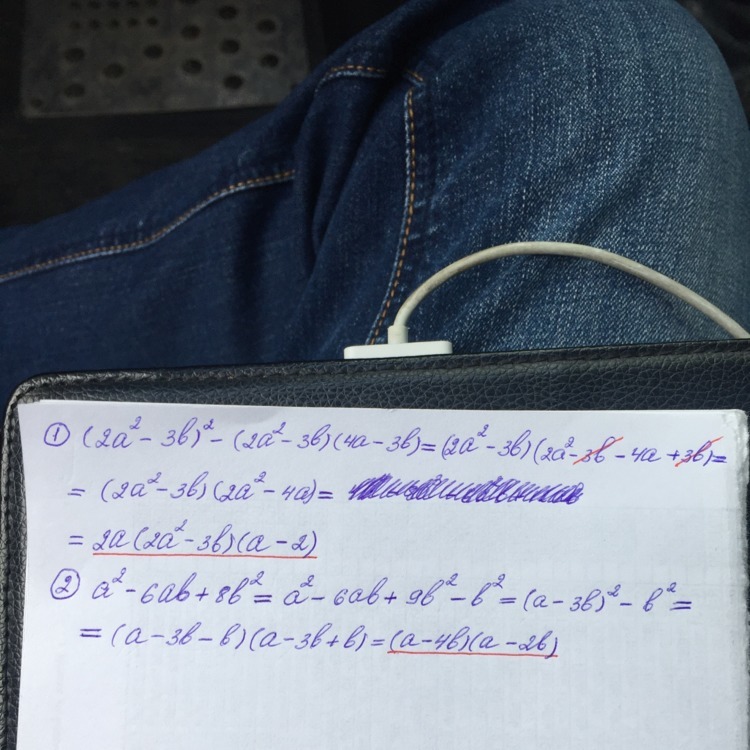 ① (2a² - 3b)² - (2a² - 3b)(4a - 3b) = (2a² - 3b)(2a² - 3b - 4a + 3b) =
= (2a² - 3b)(2a² - 4a) =
= 2a(2a² - 3b)(a - 2)
② a² - 6ab + 8b² = a² - 6ab + 9b² - b² = (a - 3b)² - b² =
= (a - 3b - b)(a - 3b + b) = (a - 4b)(a - 2b)